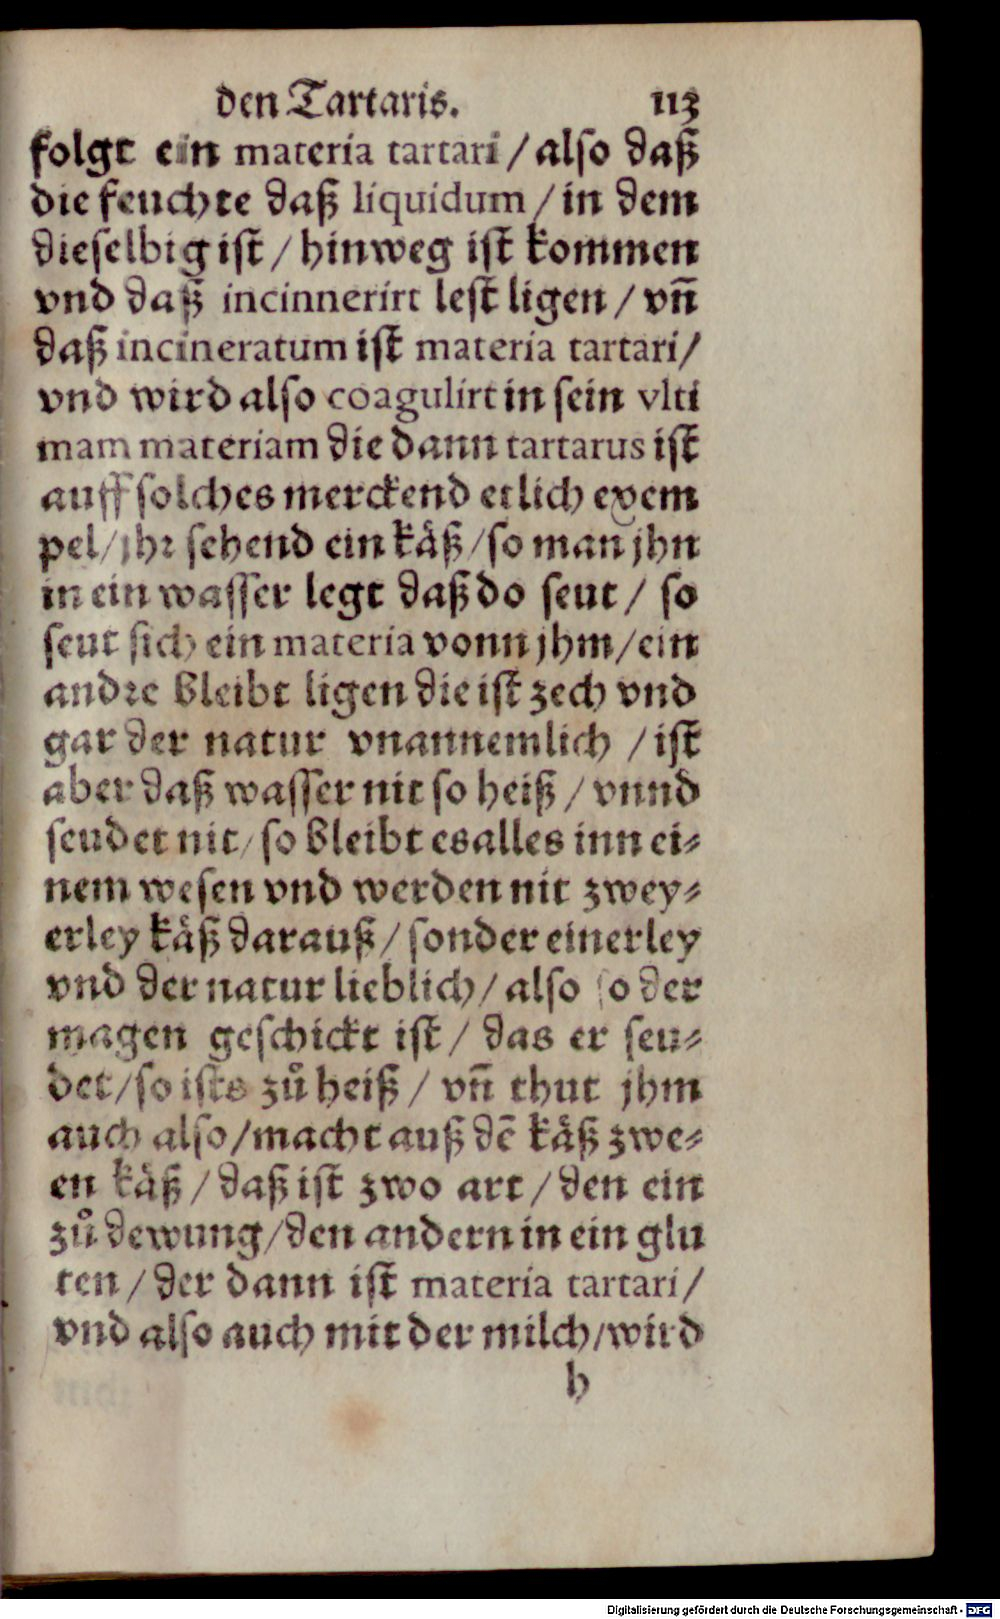 den Tartaris. 113
folgt ein materia tartari / also daß
die feuchte daß liquidum / in dem
dieselbig ist / hinweg ist kommen
vnd daß incinnerirt lest ligen / vñ
daß incineratum ist materia tartari/
vnd wird also coagulirt in sein vlti
mam materiam die dann tartarus ist
auff solches merckend etlich exem
pel/jhr sehend ein käß/so man jhn
in ein wasser legt daß do seut / so
seut sich ein materia vonn jhm/ein
andre bleibt ligen die ist zech vnd
gar der natur vnannemlich /ist
aber daß wasser nit so heiß / vnnd
seudet nit/so bleibt es alles inn ei-
nem wesen vnd werden nit zwey-
erley käß darauß/sonder einerley
vnd der natur lieblich/also so der
magen geschickt ist / das er seu-
det/so ists zů heiß / vñ thut jhm
auch also/macht auß dē käß zwe-
en käß/daß ist zwo art/den ein
zů dewung/den andern in ein glu
ten / der dann ist materia tartari/
vnd also auch mit der milch/wird
h
Digitalisierung gefördert durch die Deutsche Forschungsgemeinschaft - DFG